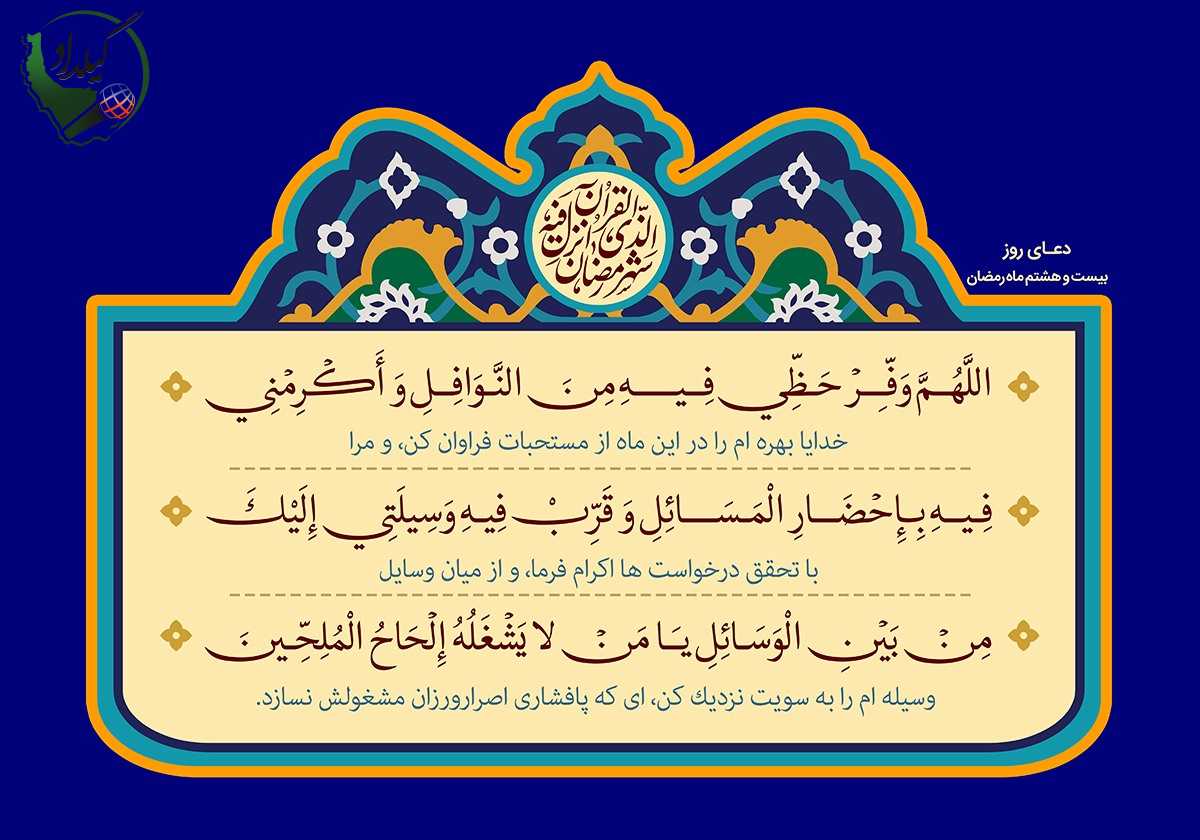 گیلداد
شهر رمضان الذی انزل فیه القرآن
دعای روز
بیست و هشتم ماه رمضان
اللَّهُمَّ وَفِّرْ حَظِّي فِيهِ مِنَ النَّوَافِلِ وَ أَكْرِمْنِي
خدایا بهره ام را در این ماه از مستحبات فراوان کن، و مرا
فِيهِ بِإِحْضَارِ الْمَسَائِلِ وَ قَرِّبْ فِيهِ وَسِيلَتِي إِلَيْكَ
با تحقق درخواست ها اکرام فرما، و از میان وسایل
مِنْ بَيْنِ الْوَسَائِلِ يَا مَنْ لا يَشْغَلُهُ إِلْحَاحُ الْمُلِحِّينَ
وسیله ام را به سویت نزدیك کن، ای که پافشاری اصرارورزان مشغولش نسازد.